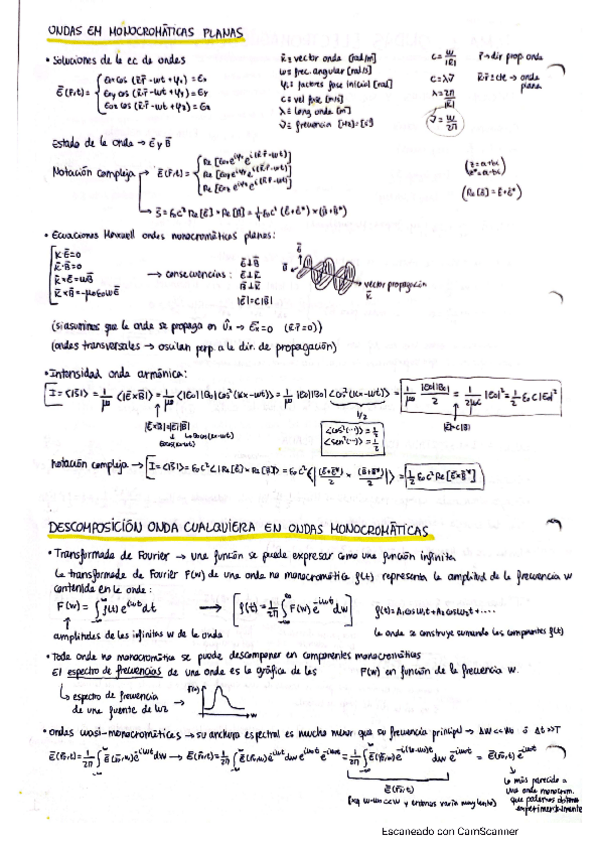 ONDAS EM MONOCROMÁTICAS PLANAS
• Soluciones de la ec de ondas
k̄ ≡ vector onda [rad/m]
w ≡ frec. angular [rad/s]
φᵢ ≡ factores fase inicial [rad]
c ≡ vel fase [m/s]
λ ≡ long onda [m]
ν ≡ frecuencia [Hz]=[s⁻¹]
c = w/|k̄|
c = λν
λ = 2π/|k̄|
ν = w/2π
r̄ → dir prop onda
k̄·r̄ = cte → onda plana
Ē(r̄,t) = { E₀ₓ cos (k̄·r̄ - wt + φ₁) = Eₓ
E₀y cos (k̄·r̄ - wt + φ₂) = Ey
E₀z cos (k̄·r̄ - wt + φ₃) = Ez
Estado de la onda → Ē y B̄
Notación compleja → Ē(r̄,t) = { Re [E₀ₓ e^{iφ₁} e^{i(k̄·r̄-wt)}]
Re [E₀y e^{iφ₂} e^{i(k̄·r̄-wt)}]
Re [E₀z e^{iφ₃} e^{i(k̄·r̄-wt)}]
(z = a+bi
z* = a-bi)
→ S̄ = ε₀c² Re[Ē] × Re[B̄] = ¼ ε₀c² (Ē+Ē*) × (B̄+B̄*)
• Ecuaciones Maxwell ondas monocromáticas planas:
k̄·Ē = 0
k̄·B̄ = 0
k̄×Ē = wB̄
k̄×B̄ = -μ₀ε₀wĒ
→ consecuencias: Ē⊥B̄
Ē⊥k̄
B̄⊥k̄
|Ē| = c|B̄|
Ē
B̄
vector propagación
k̄
(si asumimos que la onda se propaga en ûₓ → Ēₓ=0
(ondas transversales → oscilan perp a la dir. de propagación)
• Intensidad onda armónica:
I = <|S̄|> = 1/μ <|Ē×B̄|> = 1/μ <|E₀||B₀|cos²(kx-wt)> = 1/μ |E₀||B₀| <cos²(kx-wt)> = 1/μ |E₀||B₀|/2 = 1/2μc |E₀|² = ½ ε₀c|E₀|²
1/2
|Ē×B̄| = |Ē||B̄|
E₀cos(kx-wt)
B₀cos(kx-wt)
<cos²(...)> = ½
<sen²(...)> = ½
|Ē| = c|B̄|
Notación compleja → I = <|S̄|> = ε₀c² <|Re[Ē] × Re[B̄]|> = ε₀c² <|(Ē+Ē*)/2 × (B̄+B̄*)/2|> = ½ ε₀c² Re[Ē×B̄*]
DESCOMPOSICIÓN ONDA CUALQUIERA EN ONDAS MONOCROMÁTICAS
• Transformada de Fourier → una función se puede expresar como una función infinita
La transformada de Fourier F(w) de una onda no monocromática f(t) representa la amplitud de la frecuencia w
contenida en la onda:
F(w) = ∫ f(t) e^{iwt} dt → f(t) = 1/2π ∫ F(w) e^{-iwt} dw
f(t) = A₁cosw₁t + A₂cosw₂t + ....
amplitudes de las infinitas w de la onda
la onda se construye sumando las componentes f(t)
• Toda onda no monocromática se puede descomponer en componentes monocromáticas
El espectro de frecuencias de una onda es la gráfica de las F(w) en función de la frecuencia w.
↳ espectro de frecuencia
de una fuente de luz →
F(w)
w
• ondas cuasi-monocromáticas → su anchura espectral es mucho menor que su frecuencia principal → Δw<<w₀ ó Δt>>T
Ē(r̄,t) = 1/2π ∫ Ē(r̄,w) e^{-iwt} dw → Ē(r̄,t) = 1/2π ∫ Ē(r̄,w) e^{-iwt} dw
Ē(r̄,t)
y entonces varía muy lento)
lo más parecido a
una onda monocrom.
que podemos obtener
experimentalmente
Escaneado con CamScanner